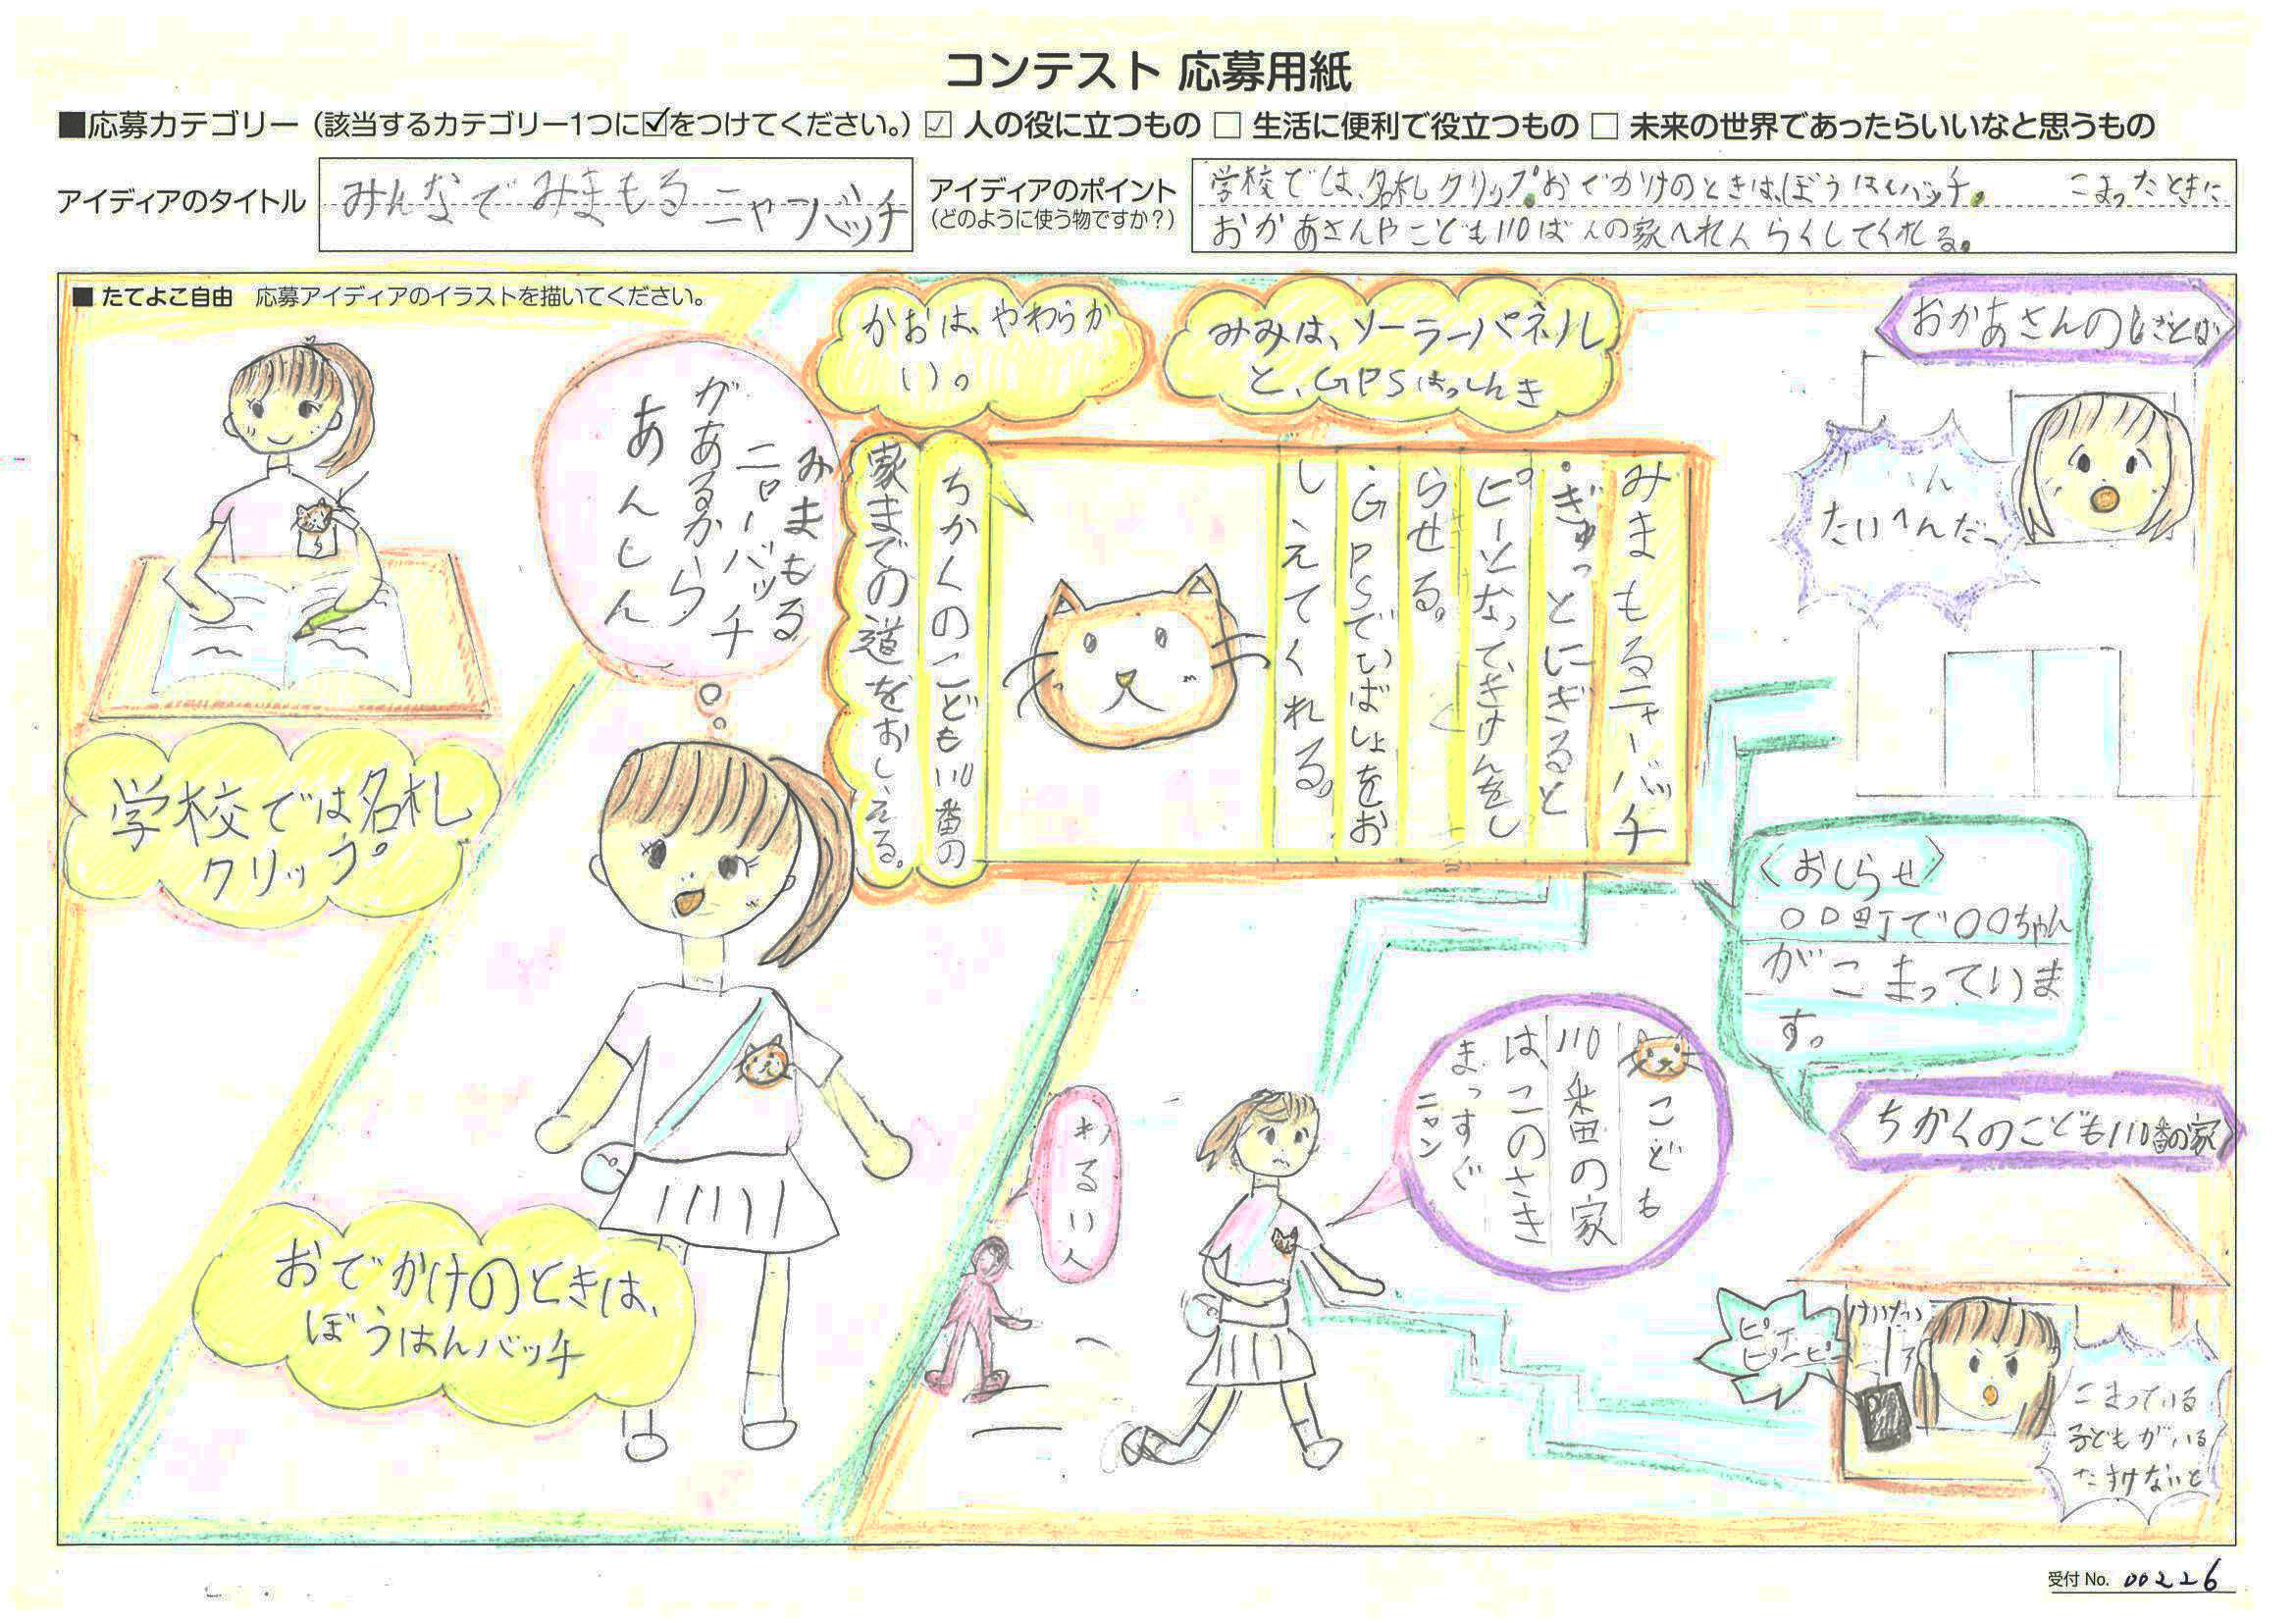 コンテスト 応募用紙
■応募カテゴリー（該当するカテゴリー1つに☑をつけてください。）☑ 人の役に立つもの □ 生活に便利で役立つもの □ 未来の世界であったらいいなと思うもの
アイディアのタイトル
みんなでみまもるニャンバッチ
アイディアのポイント
（どのように使う物ですか？）
学校では、名札クリップ。おでかけのときは、ぼうはんバッチ。 こまったときに
おかあさんやこども110ばんの家へれんらくしてくれる。
■ たてよこ自由 応募アイディアのイラストを描いてください。
学校では名札
クリップ。
みまもる
ニャーバッチ
があるから
あんしん
おでかけのときは、
ぼうはんバッチ
かおは、やわらか
い。
みみは、ソーラーパネル
と、GPSはっしんき
みまもるニャーバッチ
・ぎゅっとにぎると
ピーとなって、きけんをし
らせる。
・GPSでいばしょをお
しえてくれる。
ちかくのこども110番の
家までの道をおしえる。
おかあさんのしごとば
たいへんだー
〈おしらせ〉
○○町で○○ちゃん
がこまっていま
す。
わるい人
こども
110番の家
は、このさき
まっすぐ
ニャン
ちかくのこども110番の家
ピー
ピーピー
けいたい
こまっている
子どもがいる
たすけないと
受付 No. 00226